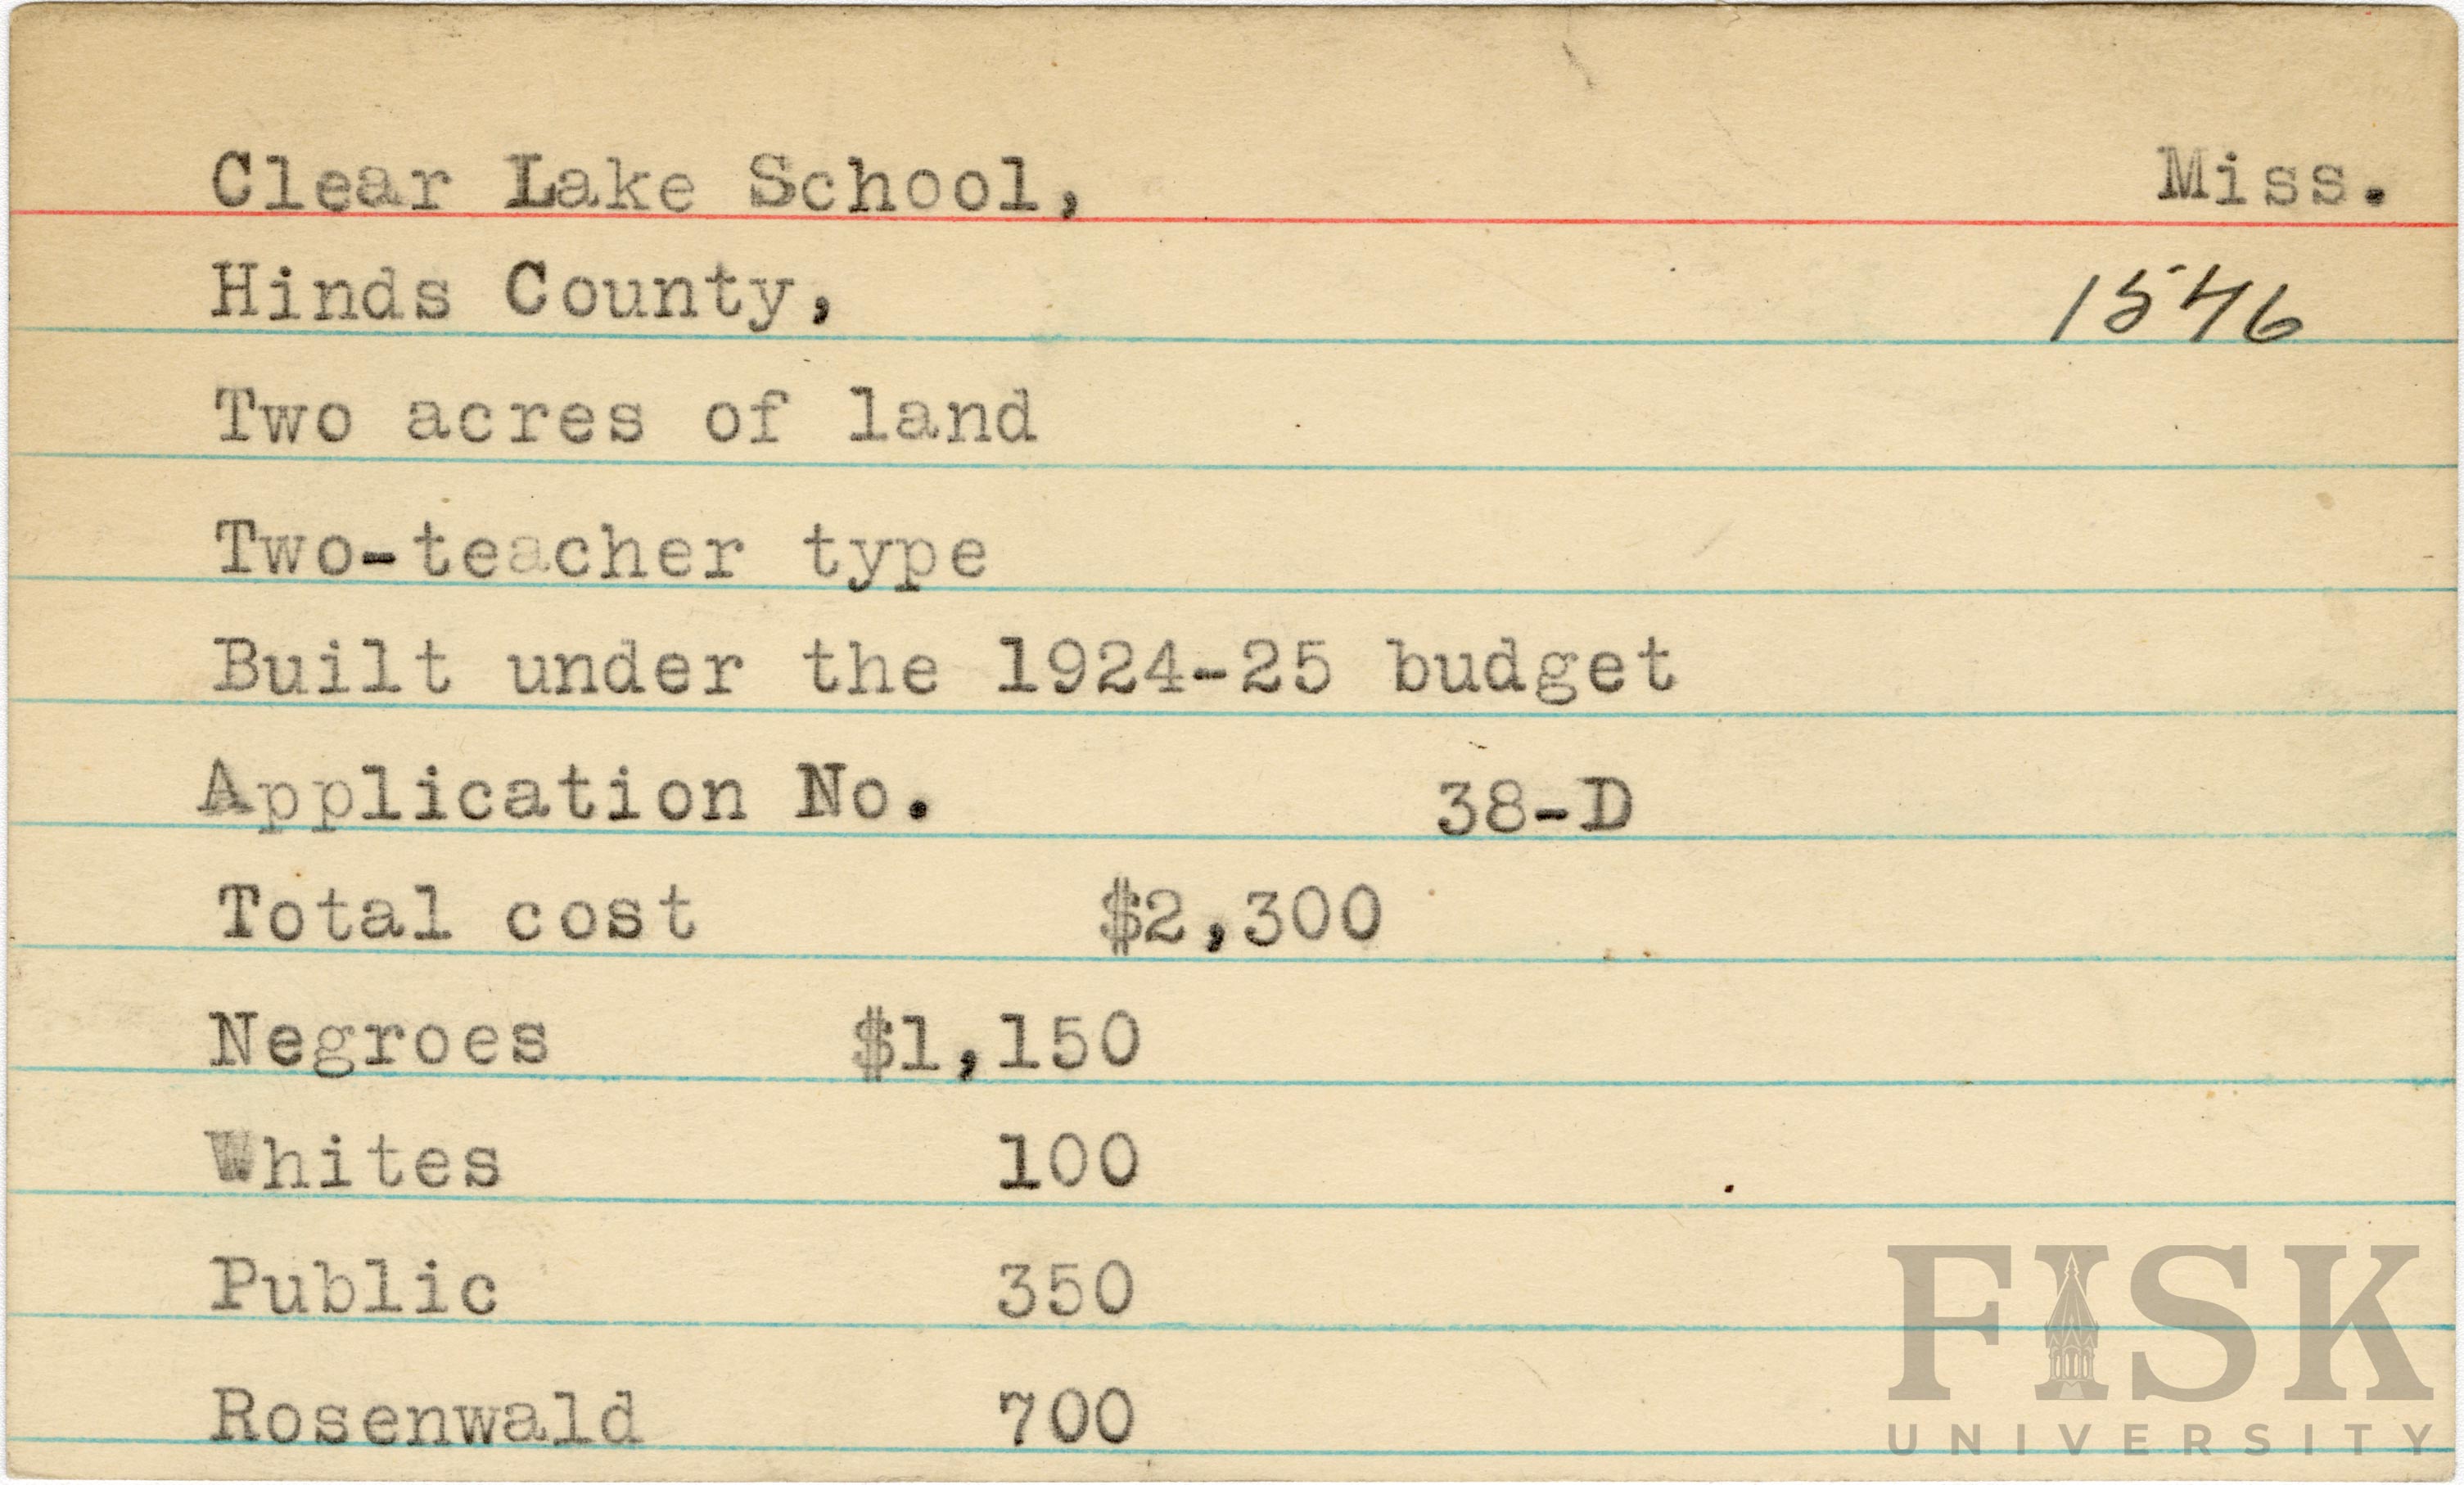 Clear Lake School, Miss.
Hinds County, 1546
Two acres of land
Two-teacher type
Built under the 1924-25 budget
Application No. 38-D
Total cost $2,300
Negroes $1,150
Whites 100
Public 350
Rosenwald 700
FISK
UNIVERSITY